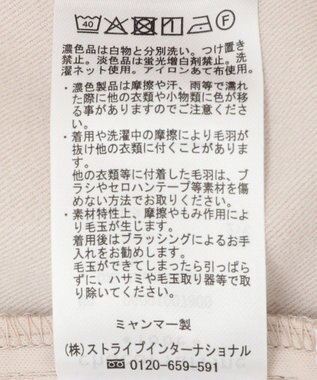 40
F
濃色品は白物と分別洗い。つけ置き
禁止。淡色品は蛍光増白剤禁止。洗
濯ネット使用。アイロンあて布使用。
・濃色製品は摩擦や汗、雨等で濡れ
た際に他の衣類や小物類に色が移
る事がありますのでご注意くださ
い。
・着用や洗濯中の摩擦により毛羽が
抜け他の衣類に付くことがありま
す。
他の衣類等に付着した毛羽は、ブ
ラシやセロハンテープ等素材を傷
めない方法でお取りください。
・素材特性上、摩擦やもみ作用によ
り毛玉が生じます。
着用後はブラッシングによるお手
入れをお勧めします。
毛玉ができてしまったら引っぱら
ずに、ハサミや毛玉取り器等で取
り除いてください。
ミャンマー製
(株)ストライプインターナショナル
0120-659-591